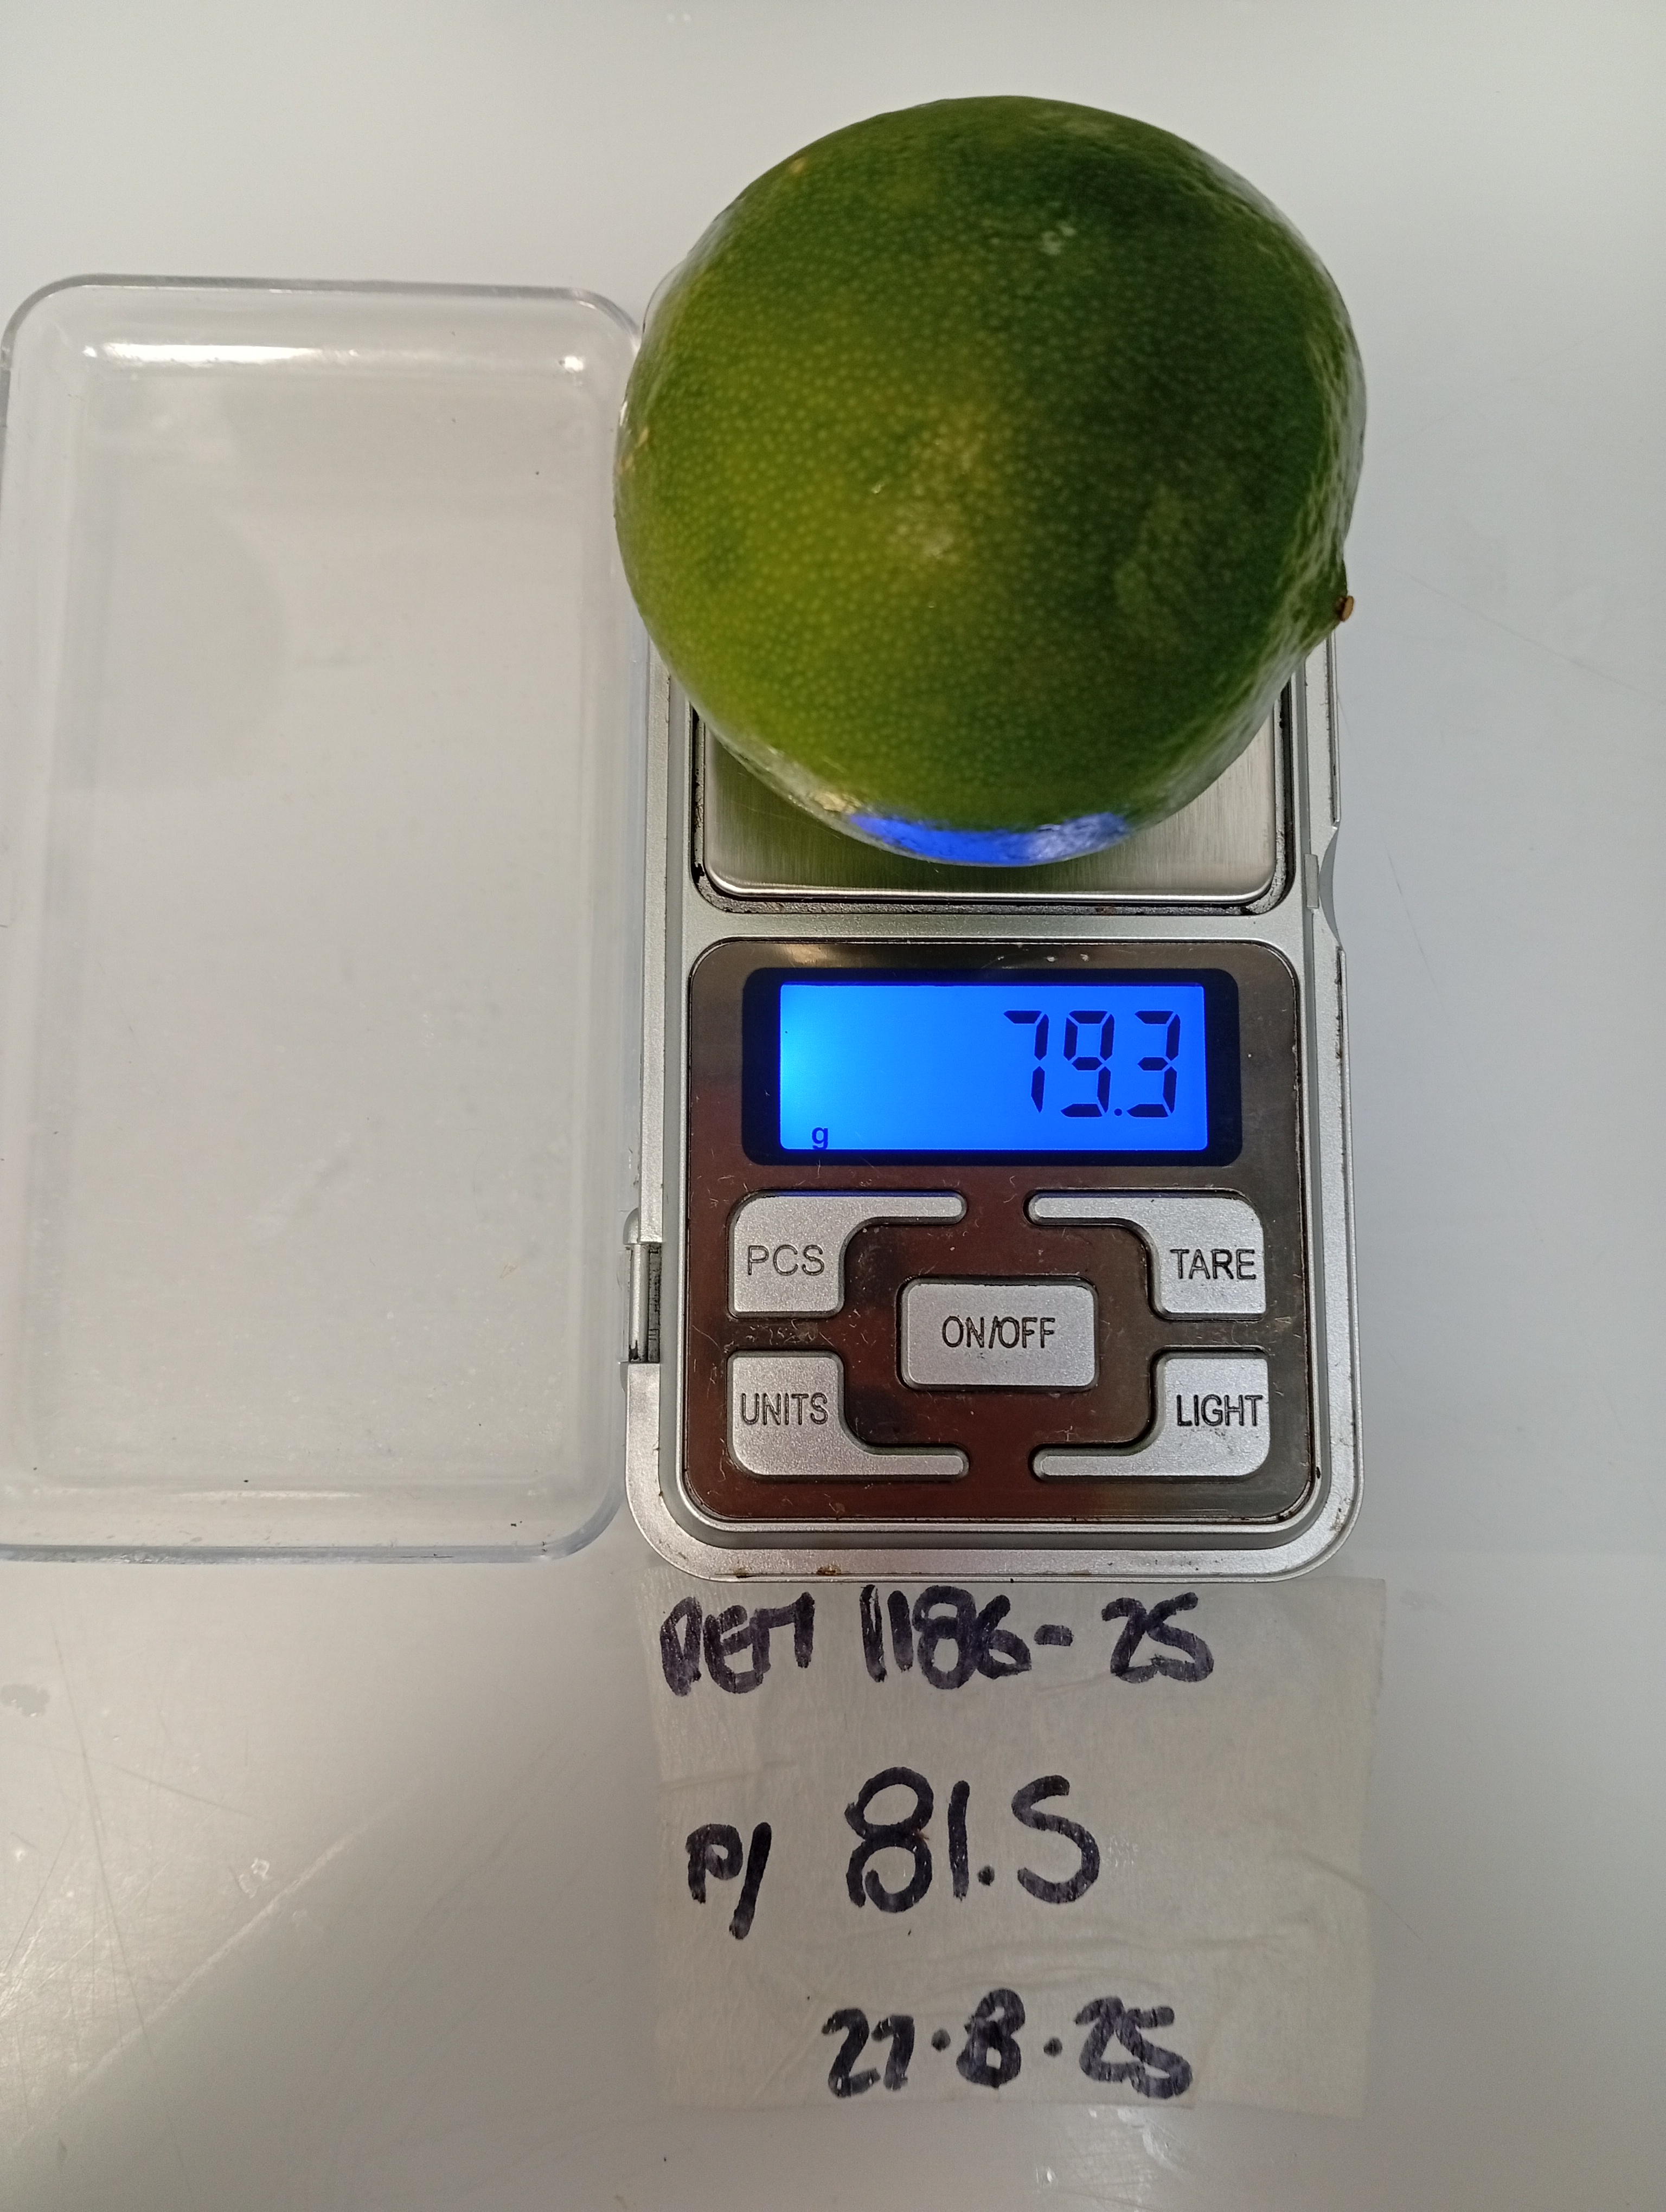 79.3
g
PCS
TARE
ON/OFF
UNITS
LIGHT
DEM 1186-25
P/ 81.5
27.8.25